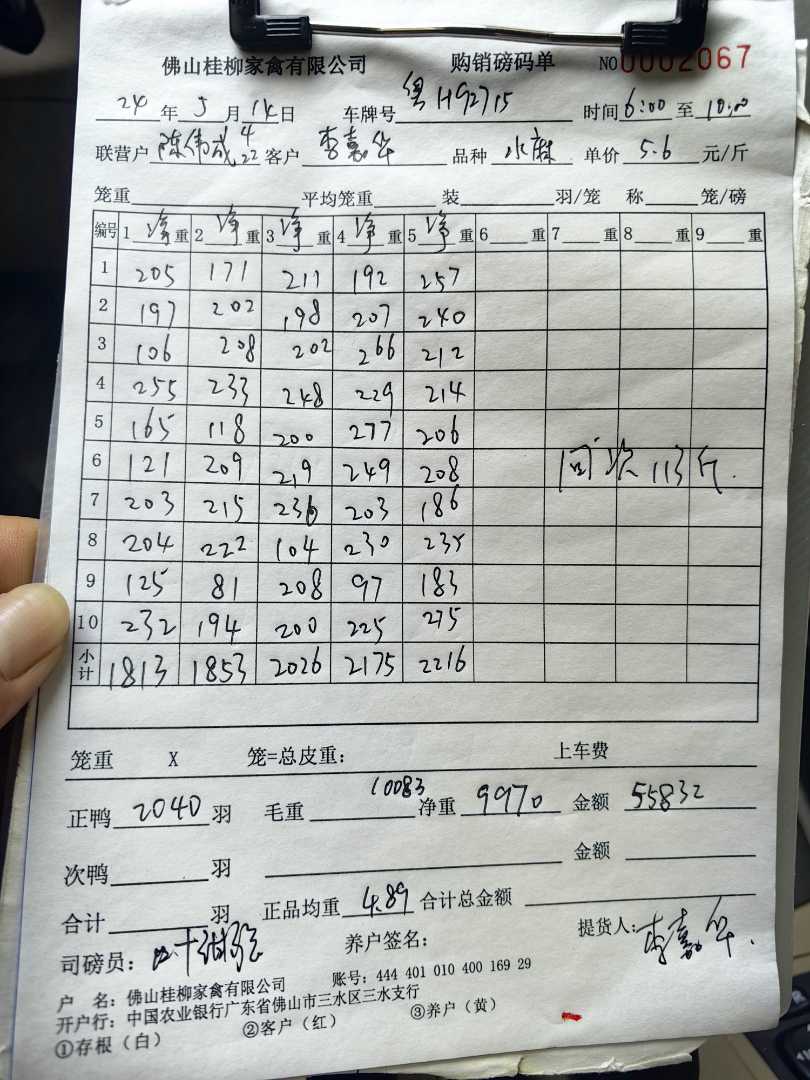 佛山桂柳家禽有限公司 购销磅码单 NO 0002067
24 年 5 月 14 日 车牌号 粤H92715 时间 6:00 至 10:00
联营户 陈伟成 4/22 客户 李嘉华 品种 水麻 单价 5.6 元/斤
笼重 平均笼重 装 羽/笼 称 笼/磅
编号 1 净 重 2 净 重 3 净 重 4 净 重 5 净 重 6 重 7 重 8 重 9 重
1 205 171 211 192 257
2 197 202 198 207 240
3 106 208 202 266 212
4 255 233 248 229 214
5 165 118 200 277 206
6 121 209 219 249 208 回次113斤.
7 203 215 236 203 186
8 204 222 104 230 235
9 125 81 208 97 183
10 232 194 200 225 275
小计 1813 1853 2026 2175 2216
笼重 X 笼=总皮重: 上车费
正鸭 2040 羽 毛重 10083 净重 9970 金额 55832
次鸭 羽 金额
合计 羽 正品均重 4.89 合计总金额
司磅员: 养户签名: 提货人: 李嘉华.
户 名: 佛山桂柳家禽有限公司 账号: 444 401 010 400 169 29
开户行: 中国农业银行广东省佛山市三水区三水支行
①存根（白） ②客户（红） ③养户（黄）